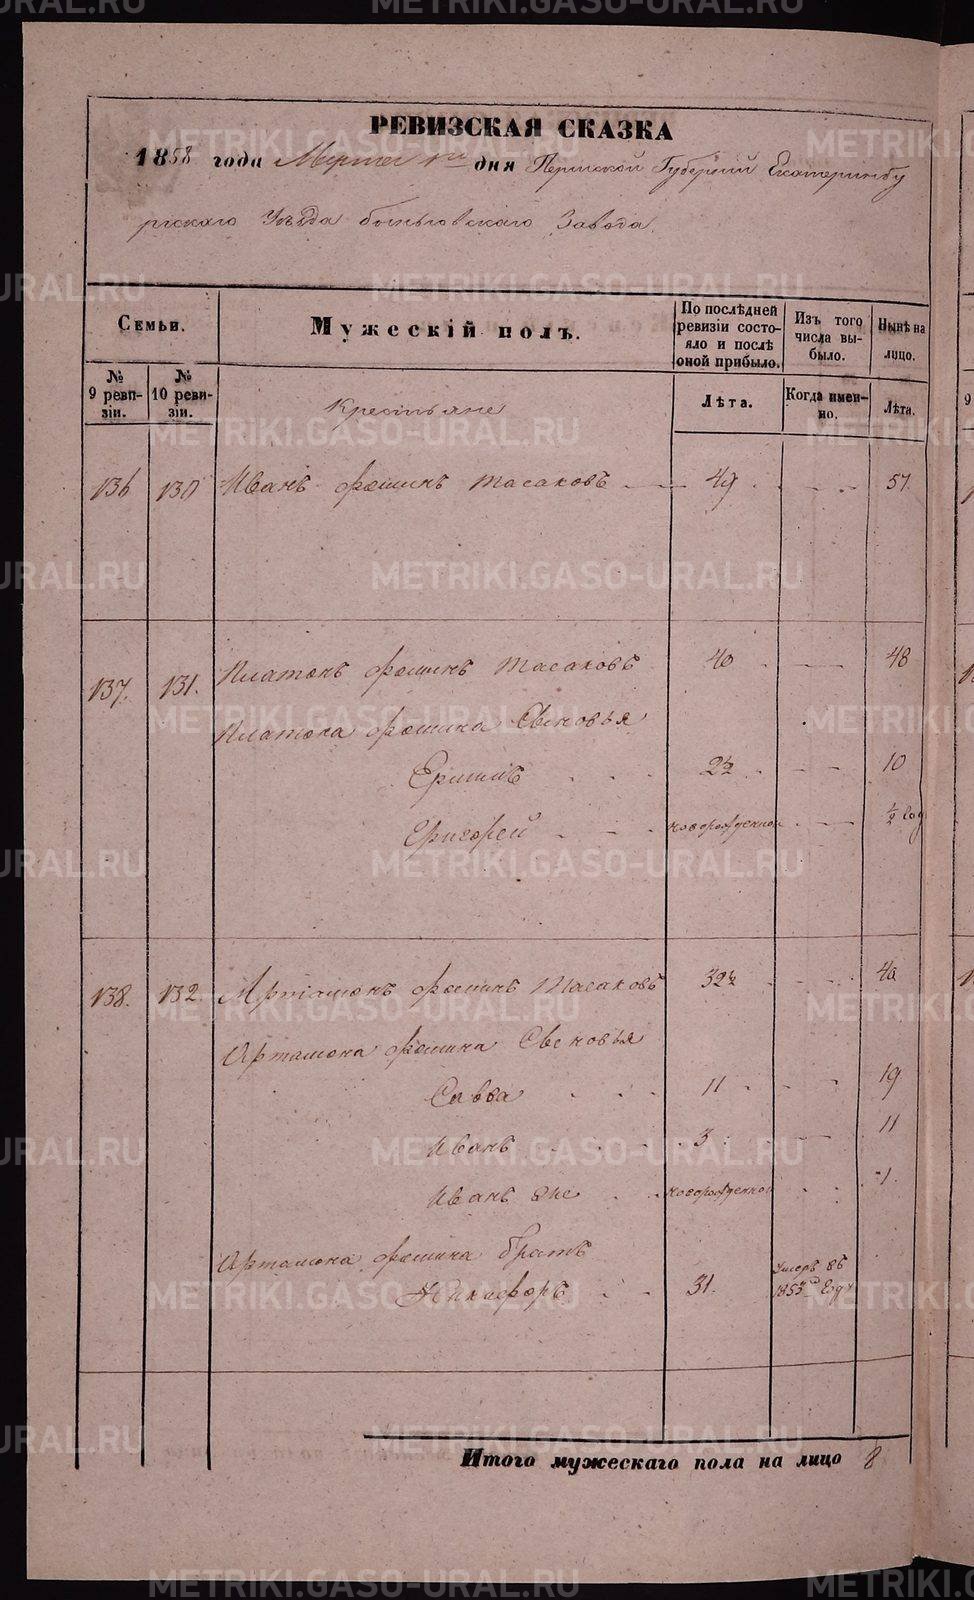 РЕВИЗСКАЯ СКАЗКА
1858 года Марта 1го дня Пермской Губернiи Екатеринбу
ргскаго Уѣзда Быньговскаго Завода.
Семьи.
Мужескiй полъ.
По послѣдней ревизiи состояло и послѣ оной прибыло.
Изъ того числа выбыло.
Нынѣ на лицо.
№ 9 ревизiи.
№ 10 ревизiи.
Крестьяне
Лѣта.
Когда именно.
Лѣта.
136 130 Иванъ Фоминъ Масаковъ 49 57.
137. 131. Платонъ Фоминъ Масаковъ 40 48
Платона Фомина Сыновья
Ермилъ 2½ 10
Григорей новорожденной ½ год
138. 132. Артамонъ Фоминъ Масаковъ 32½ 40
Артамона Фомина Сыновья
Савва 11 19
Иванъ 3 11
Иванъ же новорожденной 1.
Артамона Фомина братъ
Никифоръ 31. Умеръ въ 1853мъ Году
Итого мужескаго пола на лицо 8
METRIKI.GASO-URAL.RU